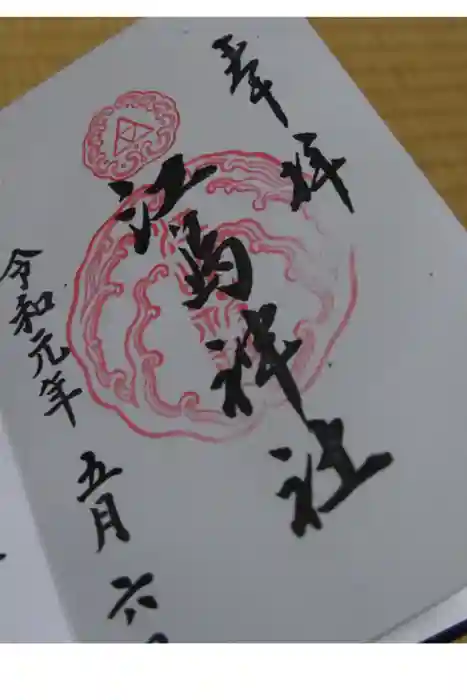 奉拝
江島神社
令和元年五月六日